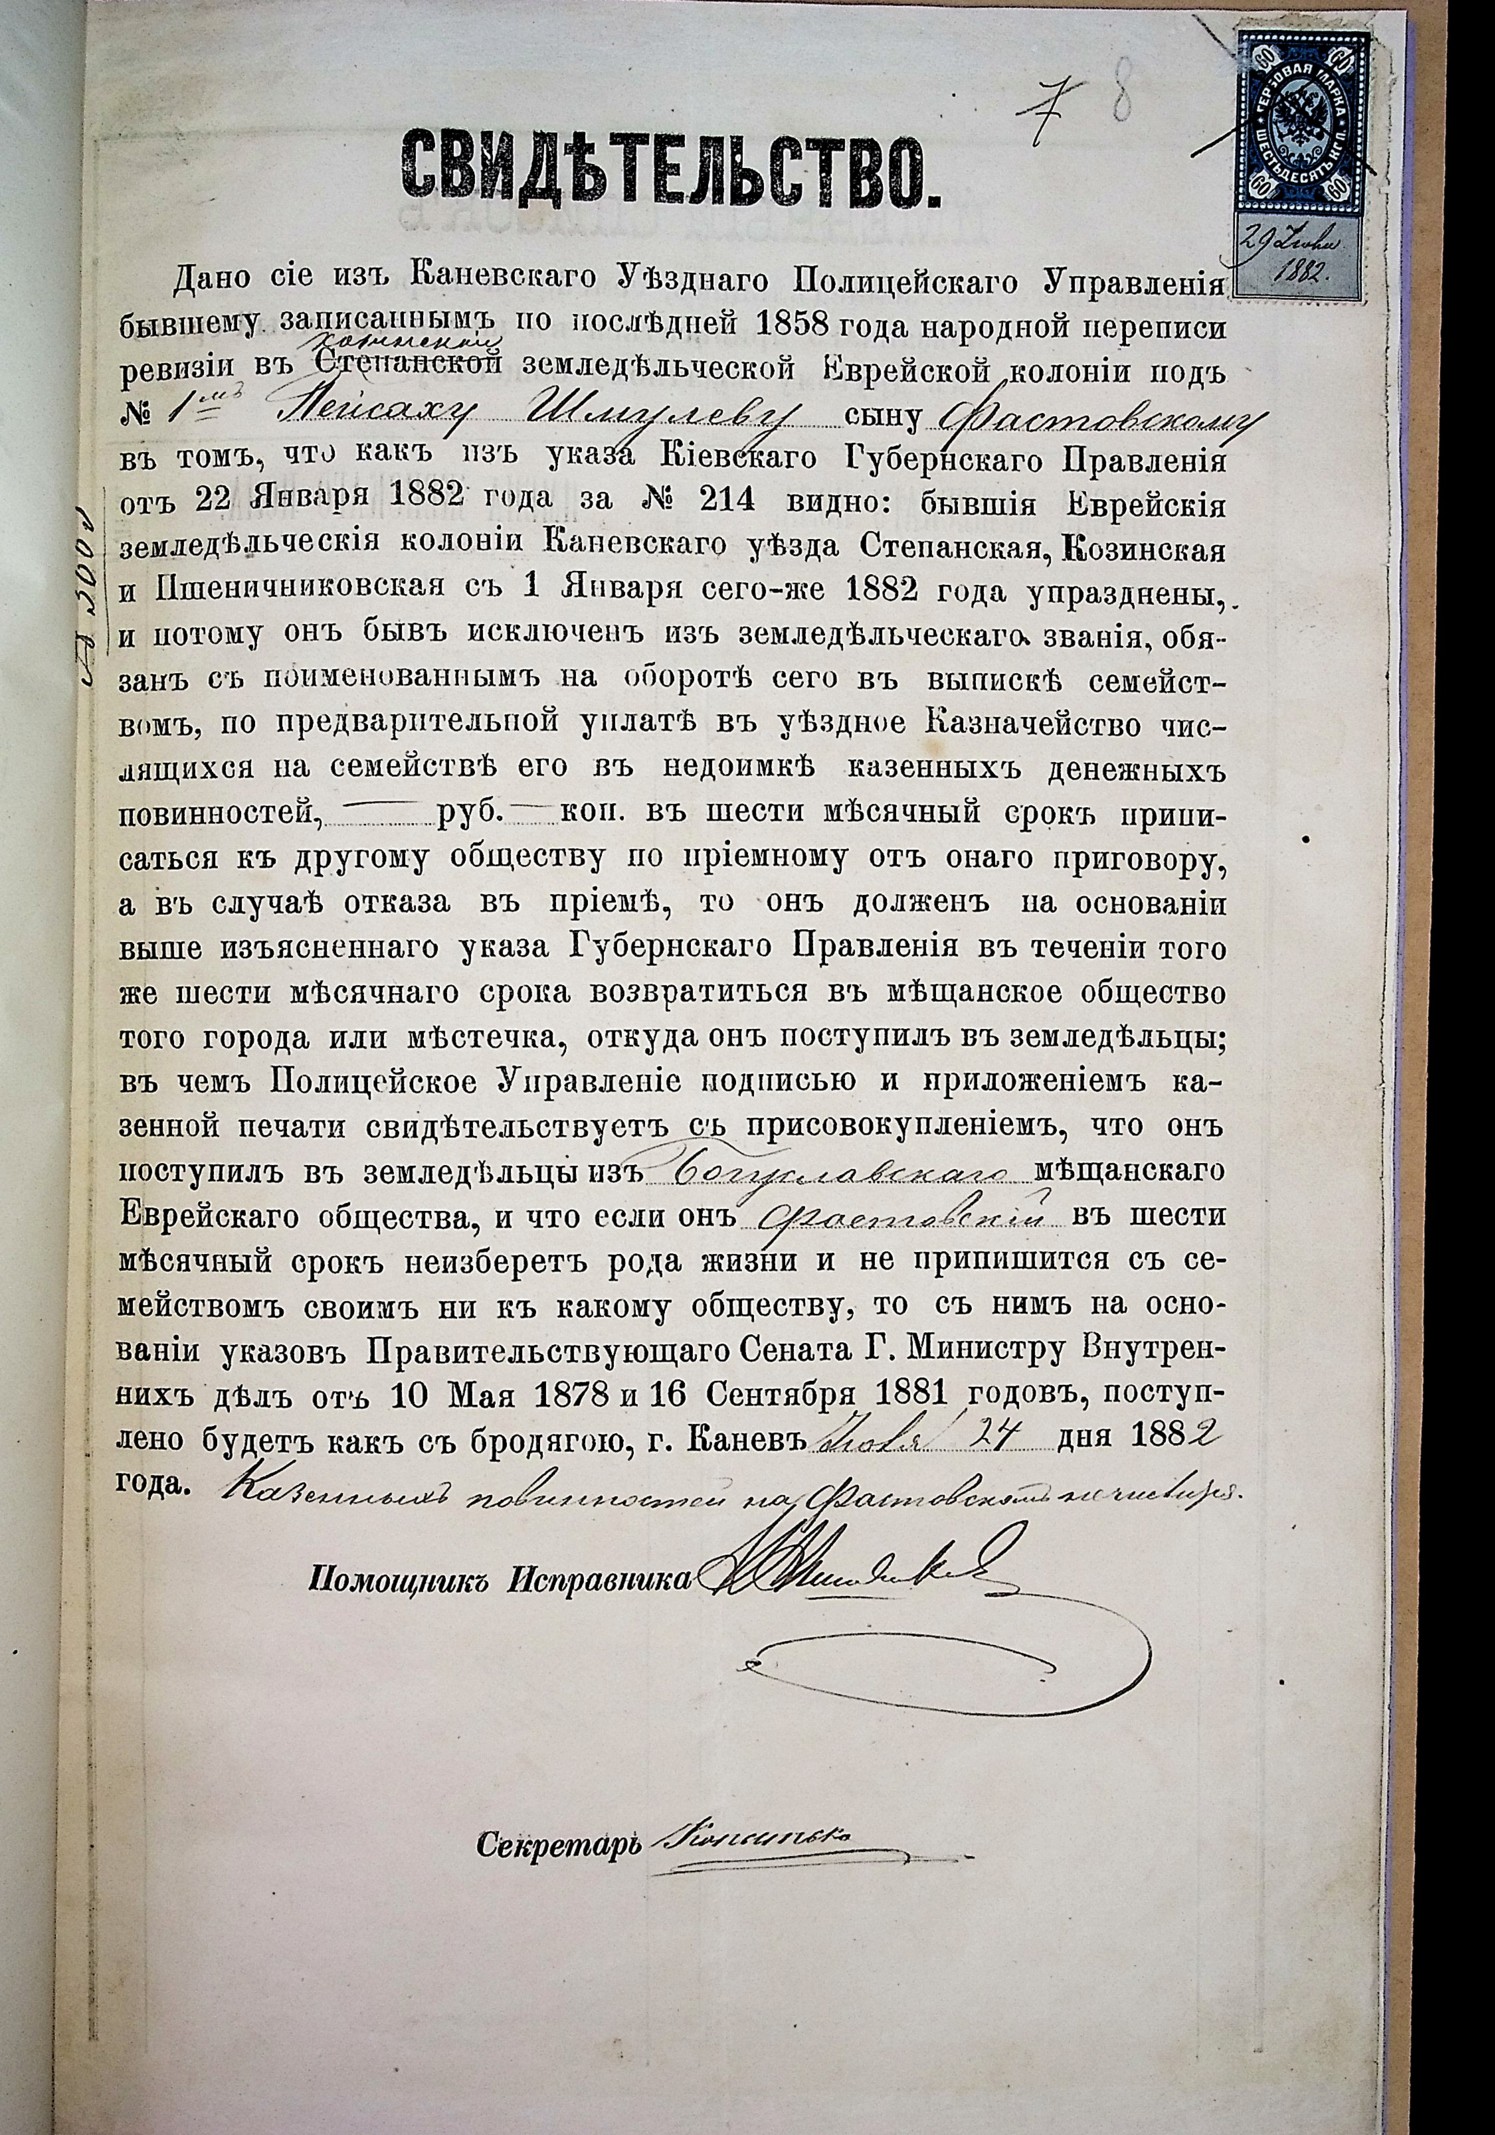 7 8
ГЕРБОВАЯ МАРКА
ШЕСТЬДЕСЯТЪ КОП.
60 60
60 60
29 Июня
1882.
СВИДѢТЕЛЬСТВО.
Дано сіе изъ Каневскаго Уѣзднаго Полицейскаго Управленія
бывшему записаннымъ по послѣдней 1858 года народной переписи
козинской
ревизіи въ Степанской земледѣльческой Еврейской колоніи подъ
№ 1мъ Пейсаху Шмулеву сыну Фастовскому
въ томъ, что какъ изъ указа Кіевскаго Губернскаго Правленія
отъ 22 Января 1882 года за № 214 видно: бывшія Еврейскія
земледѣльческія колоніи Каневскаго уѣзда Степанская, Козинская
и Пшеничниковская съ 1 Января сего-же 1882 года упразднены,
и потому онъ бывъ исключенъ изъ земледѣльческаго званія, обя-
занъ съ поименованнымъ на оборотѣ сего въ выпискѣ семейст-
вомъ, по предварительной уплатѣ въ уѣздное Казначейство чис-
лящихся на семействѣ его въ недоимкѣ казенныхъ денежныхъ
повинностей, — руб. — коп. въ шести мѣсячный срокъ припи-
саться къ другому обществу по пріемному отъ онаго приговору,
а въ случаѣ отказа въ пріемѣ, то онъ долженъ на основаніи
выше изъясненнаго указа Губернскаго Правленія въ теченіи того
же шести мѣсячнаго срока возвратиться въ мѣщанское общество
того города или мѣстечка, откуда онъ поступилъ въ земледѣльцы;
въ чемъ Полицейское Управленіе подписью и приложеніемъ ка-
зенной печати свидѣтельствуетъ съ присовокупленіемъ, что онъ
поступилъ въ земледѣльцы изъ Богуславскаго мѣщанскаго
Еврейскаго общества, и что если онъ Фастовскій въ шести
мѣсячный срокъ неизберетъ рода жизни и не припишится съ се-
мействомъ своимъ ни къ какому обществу, то съ нимъ на осно-
ваніи указовъ Правительствующаго Сената Г. Министру Внутрен-
нихъ дѣлъ отъ 10 Мая 1878 и 16 Сентября 1881 годовъ, поступ-
лено будетъ какъ съ бродягою, г. Каневъ 24 дня 1882
года. Казенныхъ повинностей на Фастовскомъ
Помощникъ Исправника
Секретарь